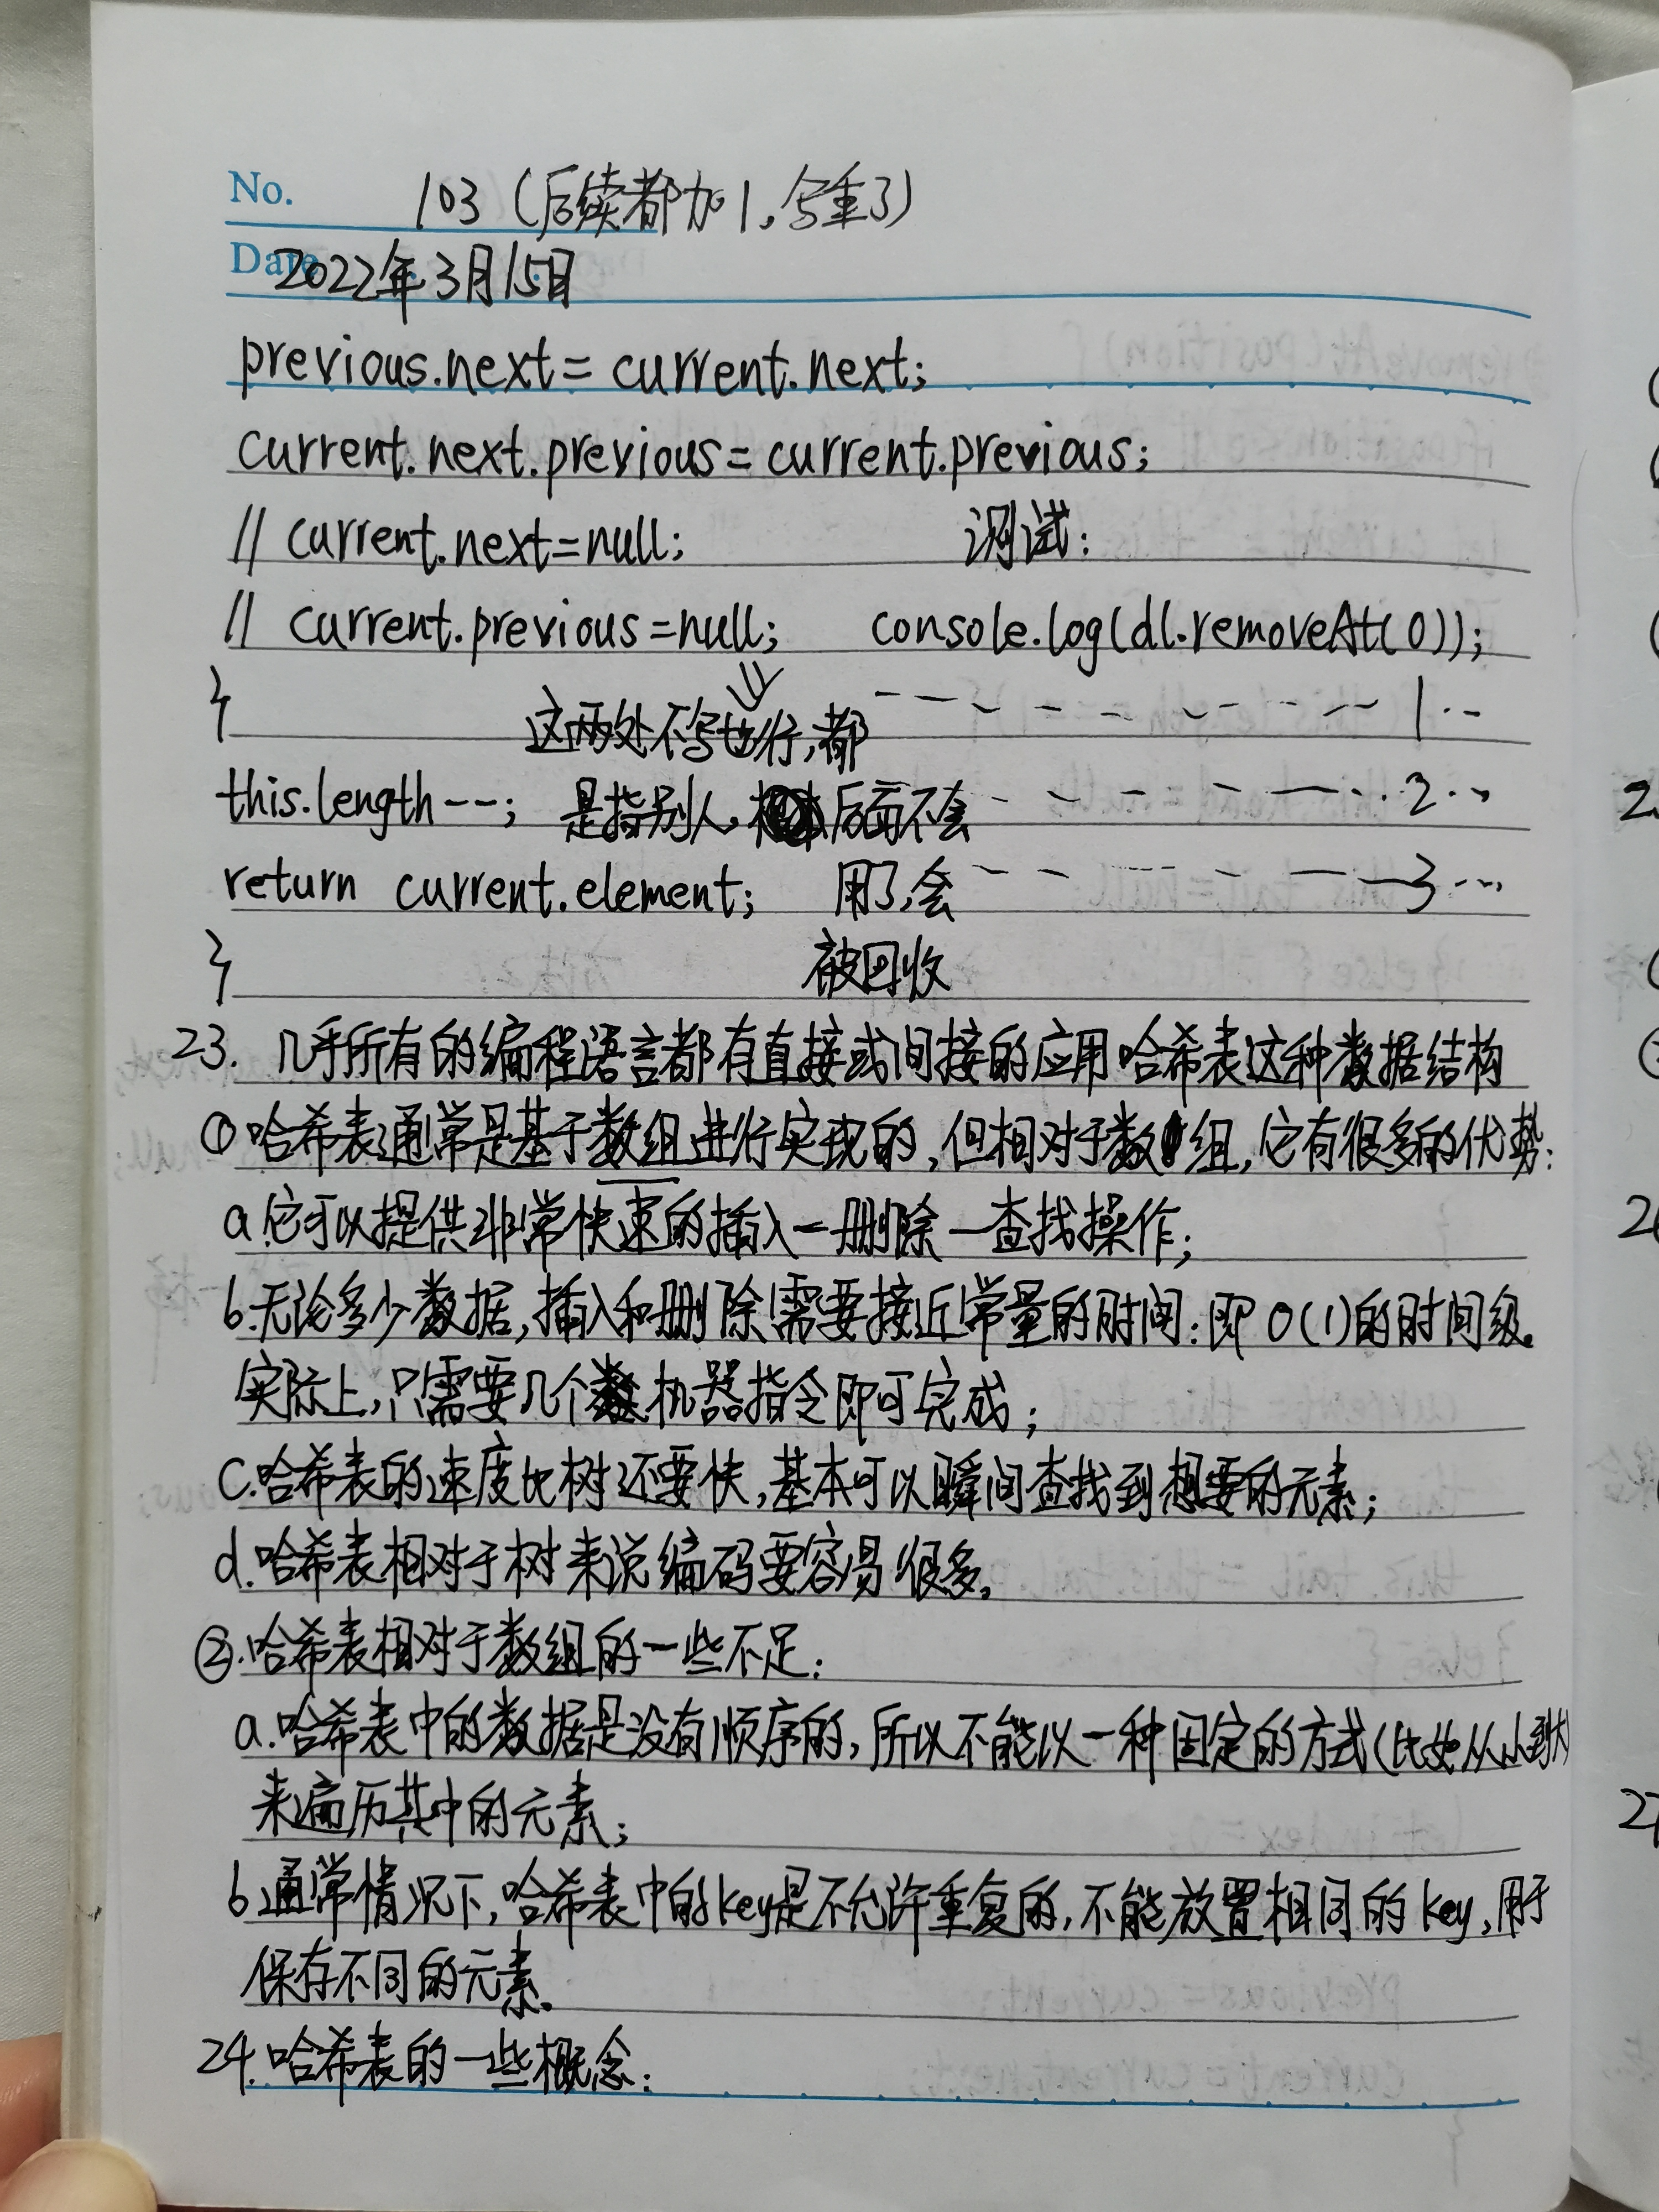 No. 103（后续都加1，写重了）
Date 2022年3月15日
previous.next = current.next;
current.next.previous = current.previous;
// current.next=null; 测试：
// current.previous=null; console.log(dl.removeAt(0));
} 这两处不写也行，都 1
this.length--; 是指别人， 后面不会 2
return current.element; 用了，会 3
} 被回收
23. 几乎所有的编程语言都有直接或间接的应用哈希表这种数据结构
①哈希表通常是基于数组进行实现的，但相对于数组，它有很多的优势：
a.它可以提供非常快速的插入－删除－查找操作；
b.无论多少数据，插入和删除需要接近常量的时间：即O(1)的时间级。
实际上，只需要几个机器指令即可完成；
C.哈希表的速度比树还要快，基本可以瞬间查找到想要的元素；
d.哈希表相对于树来说编码要容易很多。
②.哈希表相对于数组的一些不足：
a.哈希表中的数据是没有顺序的，所以不能以一种固定的方式（比如从小到大
来遍历其中的元素；
b.通常情况下，哈希表中的key是不允许重复的，不能放置相同的key，用于
保存不同的元素。
24.哈希表的一些概念：